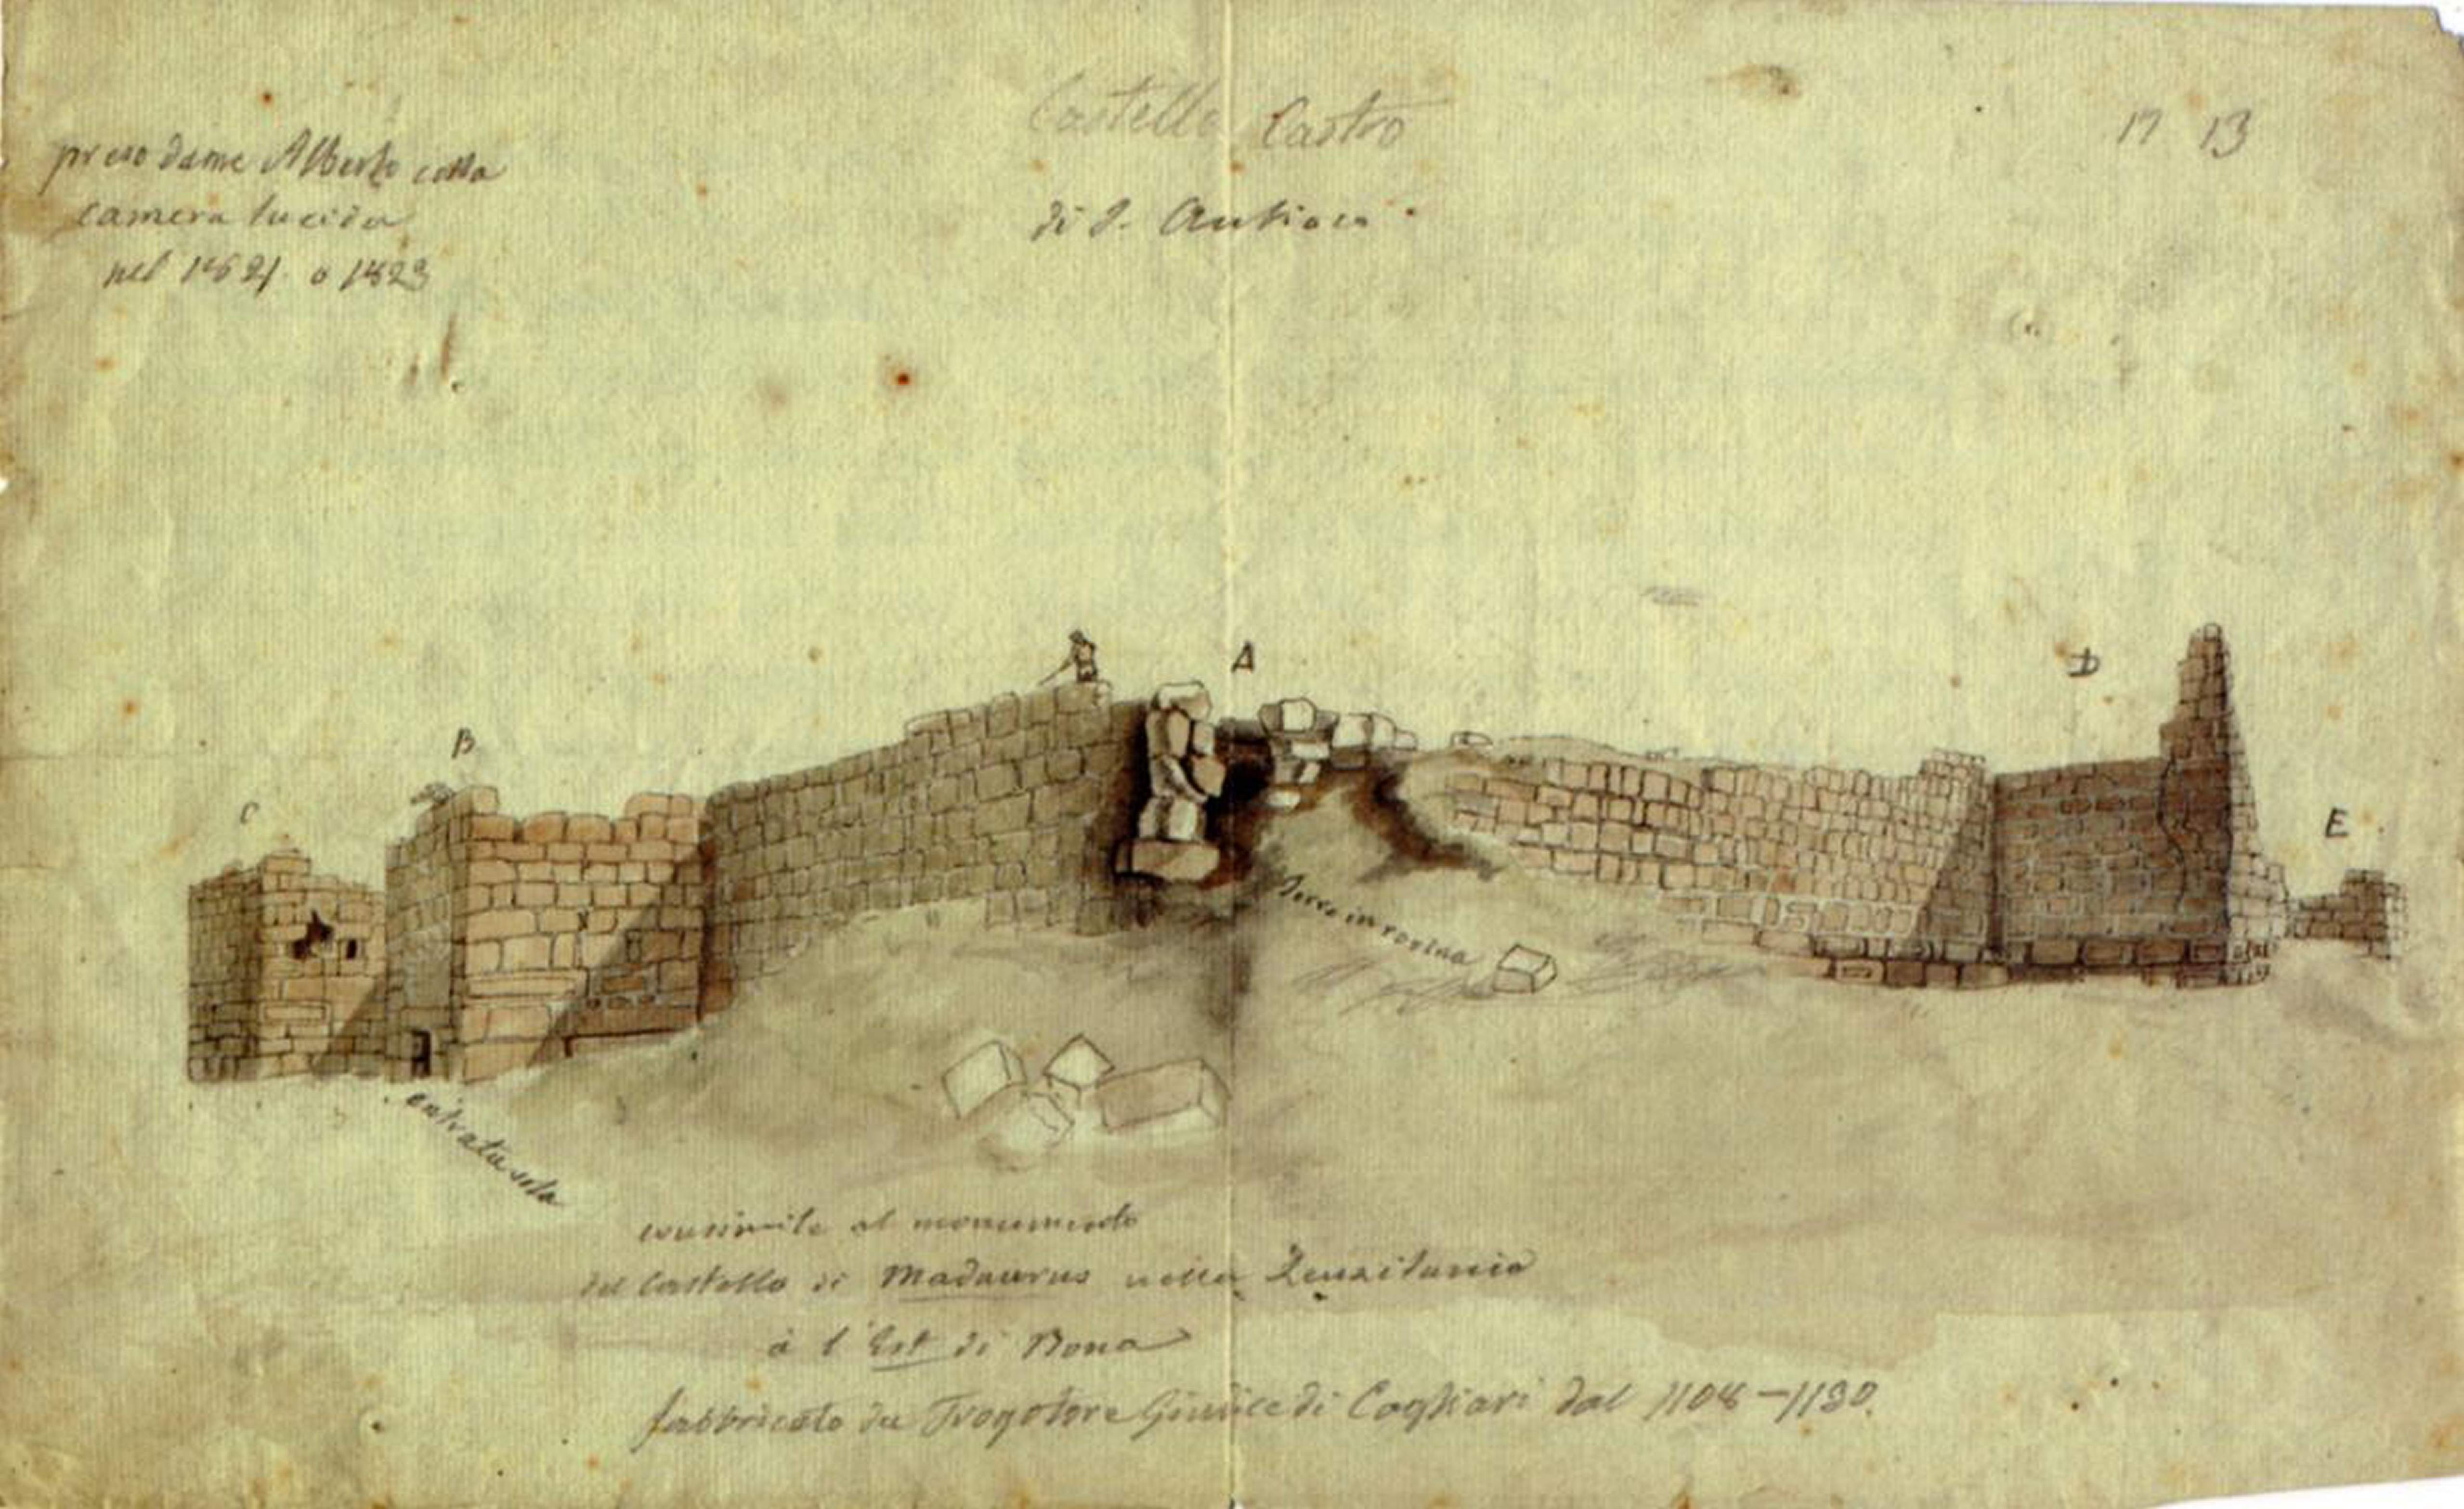 Castello Castro
di S. Antioco
n 13
preso da me Alberto colla
camera lucida
nel 1821 o 1823
A
B
C
D
E
Torre in rovina
entrata sola
al monumento
del Castello di Madaurus nella Zeuxitania
à l'Est di Bona
fabbricato da Trogotore Giudice di Cagliari dal 1108-1130.